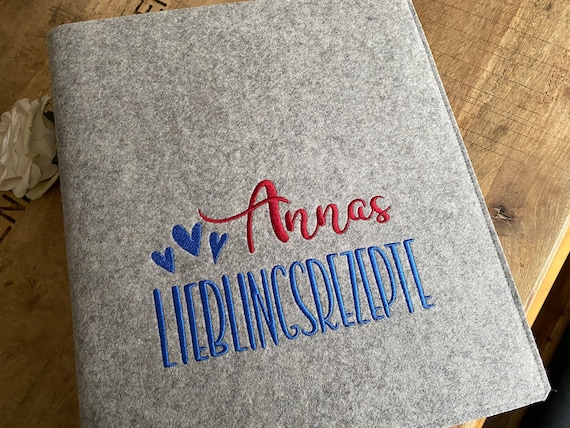 Annas
LIEBLINGSREZEPTE